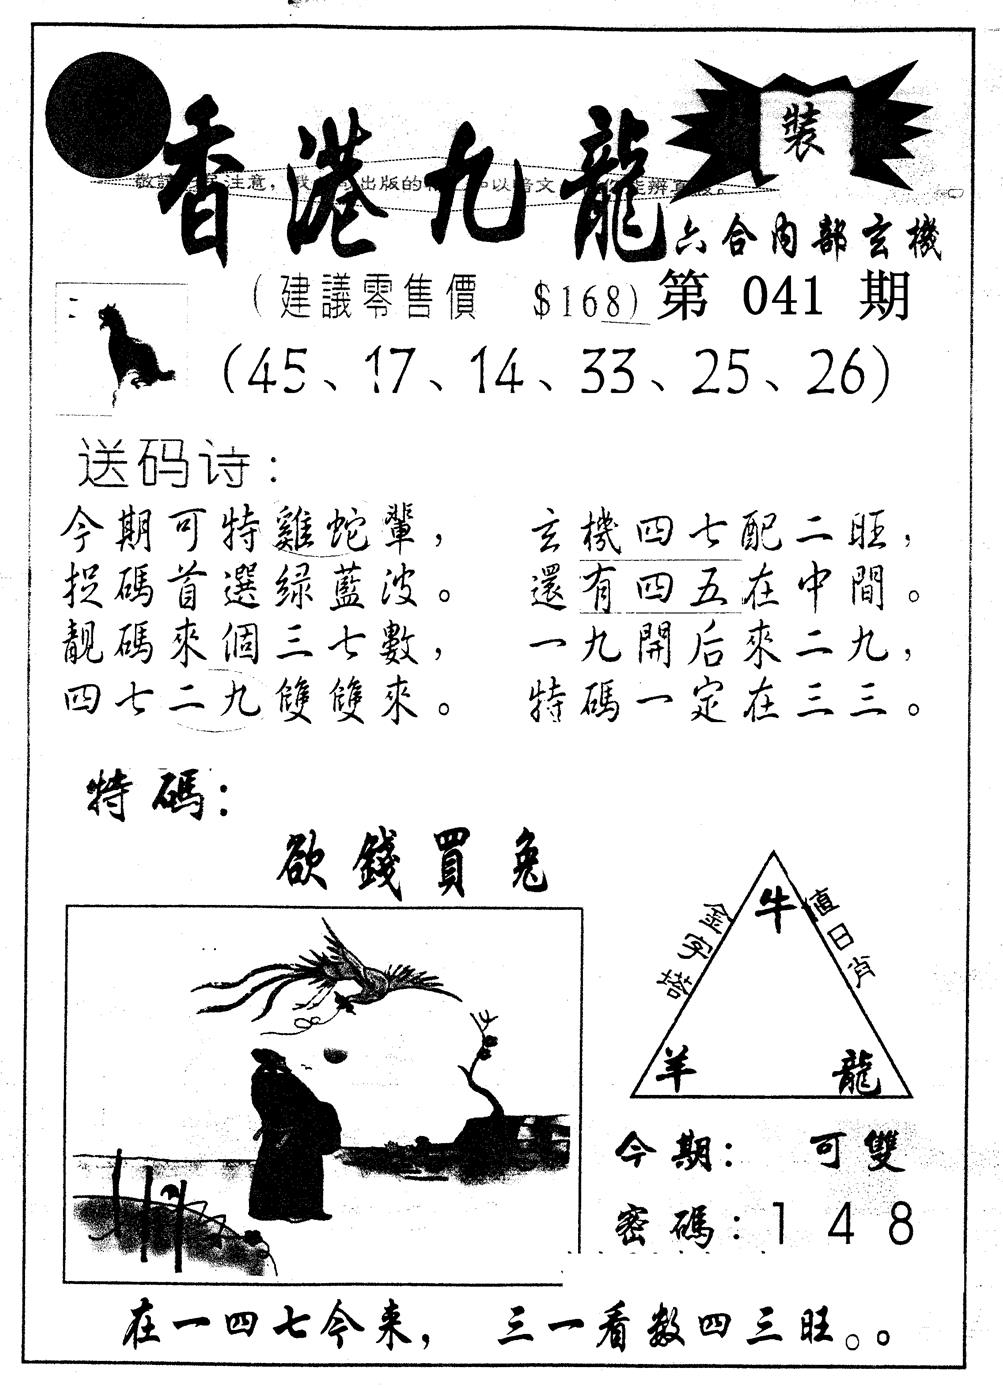 香港九龍
裝
敬請 注意，我 出版的 以暗文 能辨真
六合内部玄機
(建議零售價 $168) 第 041 期
(45、17、14、33、25、26)
送码诗：
今期可特雞蛇輩， 玄機四七配二旺，
捉碼首選绿藍波。 還有四五在中間。
靚碼來個三七數， 一九開后來二九，
四七二九雙雙來。 特碼一定在三三。
特碼：
欲錢買兔
金字塔 牛 值日肖
羊 龍
今期： 可雙
密碼：1 4 8
在一四七今来， 三一看数四三旺。。